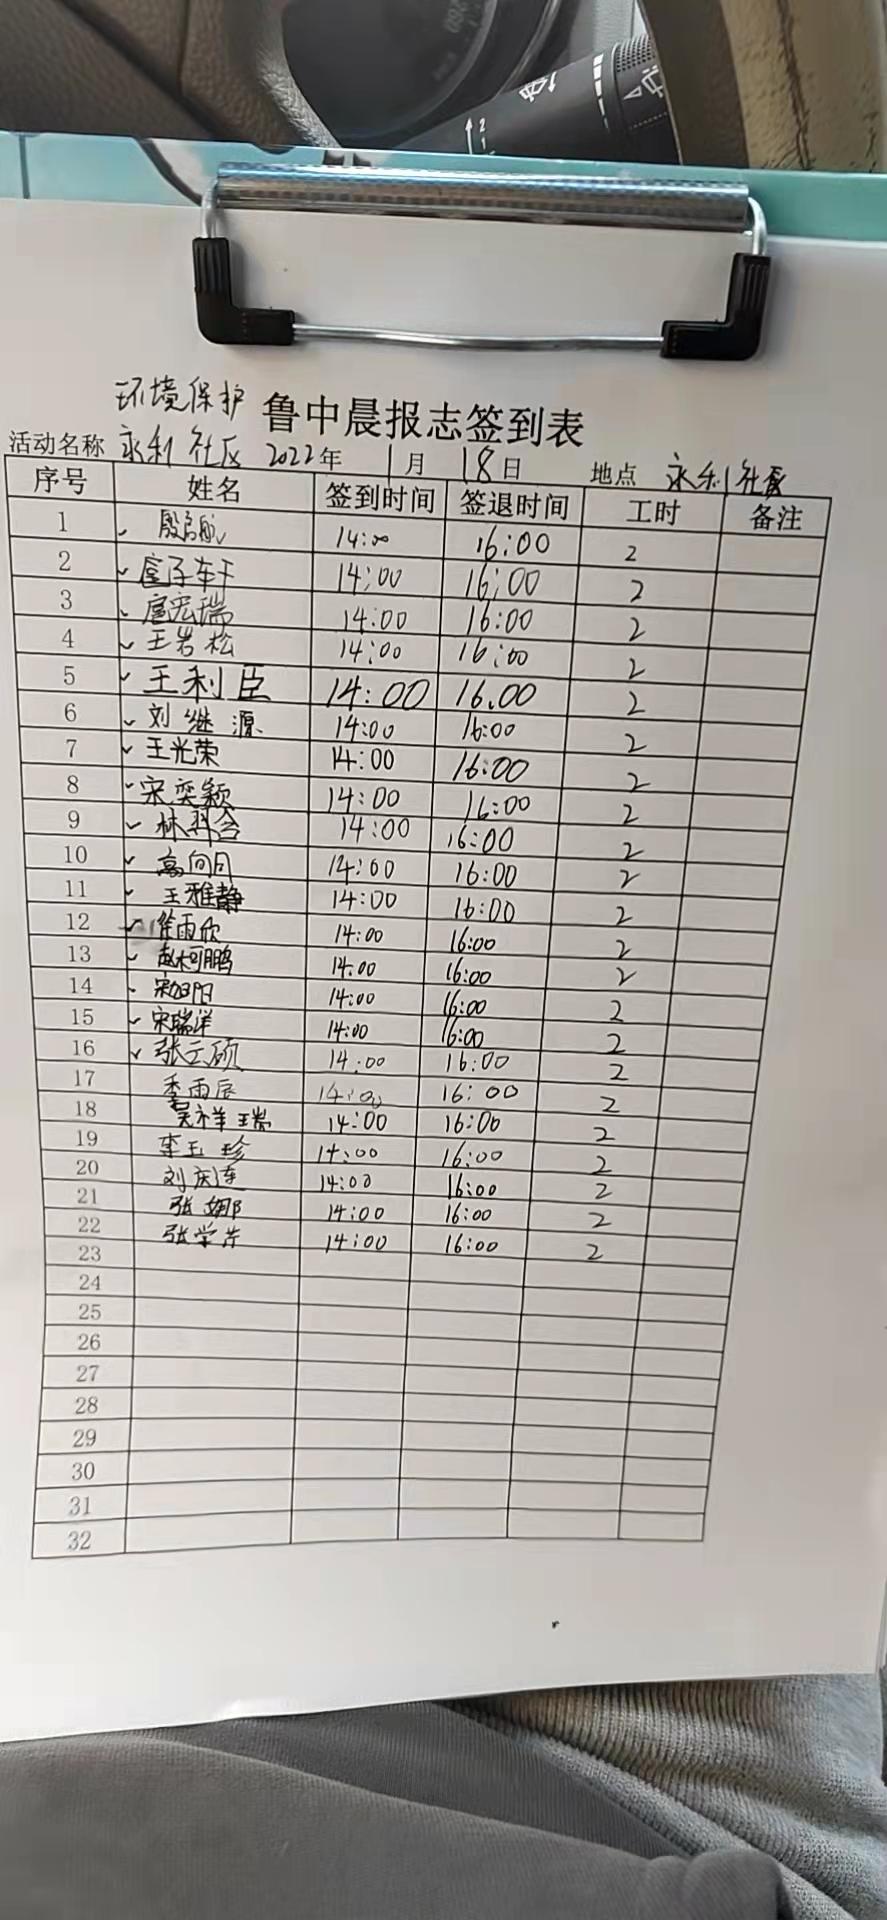 2
1
环境保护
鲁中晨报志签到表
活动名称 永利社区 2022年 1月 18日 地点 永利社区
序号 姓名 签到时间 签退时间 工时 备注
1 殷启航 14:00 16:00 2
2 14:00 16:00 2
3 扈宏瑞 14:00 16:00 2
4 王岩松 14:00 16:00 2
5 王利臣 14:00 16.00 2
6 刘继源 14:00 16:00 2
7 王光荣 14:00 16:00 2
8 宋奕颖 14:00 16:00 2
9 林 14:00 16:00 2
10 高向同 14:00 16:00 2
11 王雅静 14:00 16:00 2
12 徐雨欣 14:00 16:00 2
13 赵柯鹏 14.00 16:00 2
14 宋旭阳 14:00 16:00 2
15 宋瑞洋 14:00 16:00 2
16 张云硕 14:00 16:00 2
17 季雨辰 14:00 16:00 2
18 吴祥瑞 14:00 16:00 2
19 李玉珍 14:00 16:00 2
20 刘庆莲 14:00 16:00 2
21 张娜 14:00 16:00 2
22 张学芹 14:00 16:00 2
23
24
25
26
27
28
29
30
31
32